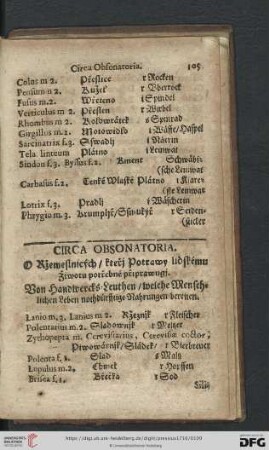 Circa Obsonatoria. 105
Colus m 2. Přeslice r Rocken
Pensum n 2. Kužel r Vberrock
Fusus m 2. Wřeteno i Spindel
Verticulus m 2. Přeslen r Wirbel
Rhombus m 2. Kolowrátek s Spinrad
Girgillus m. 2. Motowidlo
Sarcinatrix f. 3. Sswadlj i Näterin
Tela linteum Plátno i Leinwat
Sindon f. 3. Byssus f. 2. Kment Schwäbi-
(sche Leinwat
Carbasus f. 2. Tenké Wlaské Plátno i Klare-
(ste Leinwat
Lotrix f. 3. Pradlj i Wäscherin
Phrygio m. 3. Krumplýř/ r Seiden-
(sticker
CIRCA OBSONATORIA.
O Ržemeslnicsch/ kteřj Potrawy lidskému
Životu potřebné připrawugj.
Von Handwercks-Leuthen/ welche Mensch-
lichen Leben nothdürfftige Nahrungen bereiten.
Lanio m. 3. Lanius m 2. Ržeznjk r Fleischer
Polentarius m 2. Sladownjk r Meltzer
Zythopepta m. Cerevisiarius, Cerevisiæ coctor,
Piwowárnjk/ Sládek/ r Bierbrewer
Polenta f. 1. Slad s Maltz
Lupulus m. 2. Chmel r Hopffen
Břečka r Sod
http://digi.ub.uni-heidelberg.de/diglit/comenius1716/0109
© Universitätsbibliothek Heidelberg
gefördert durch die
DFG